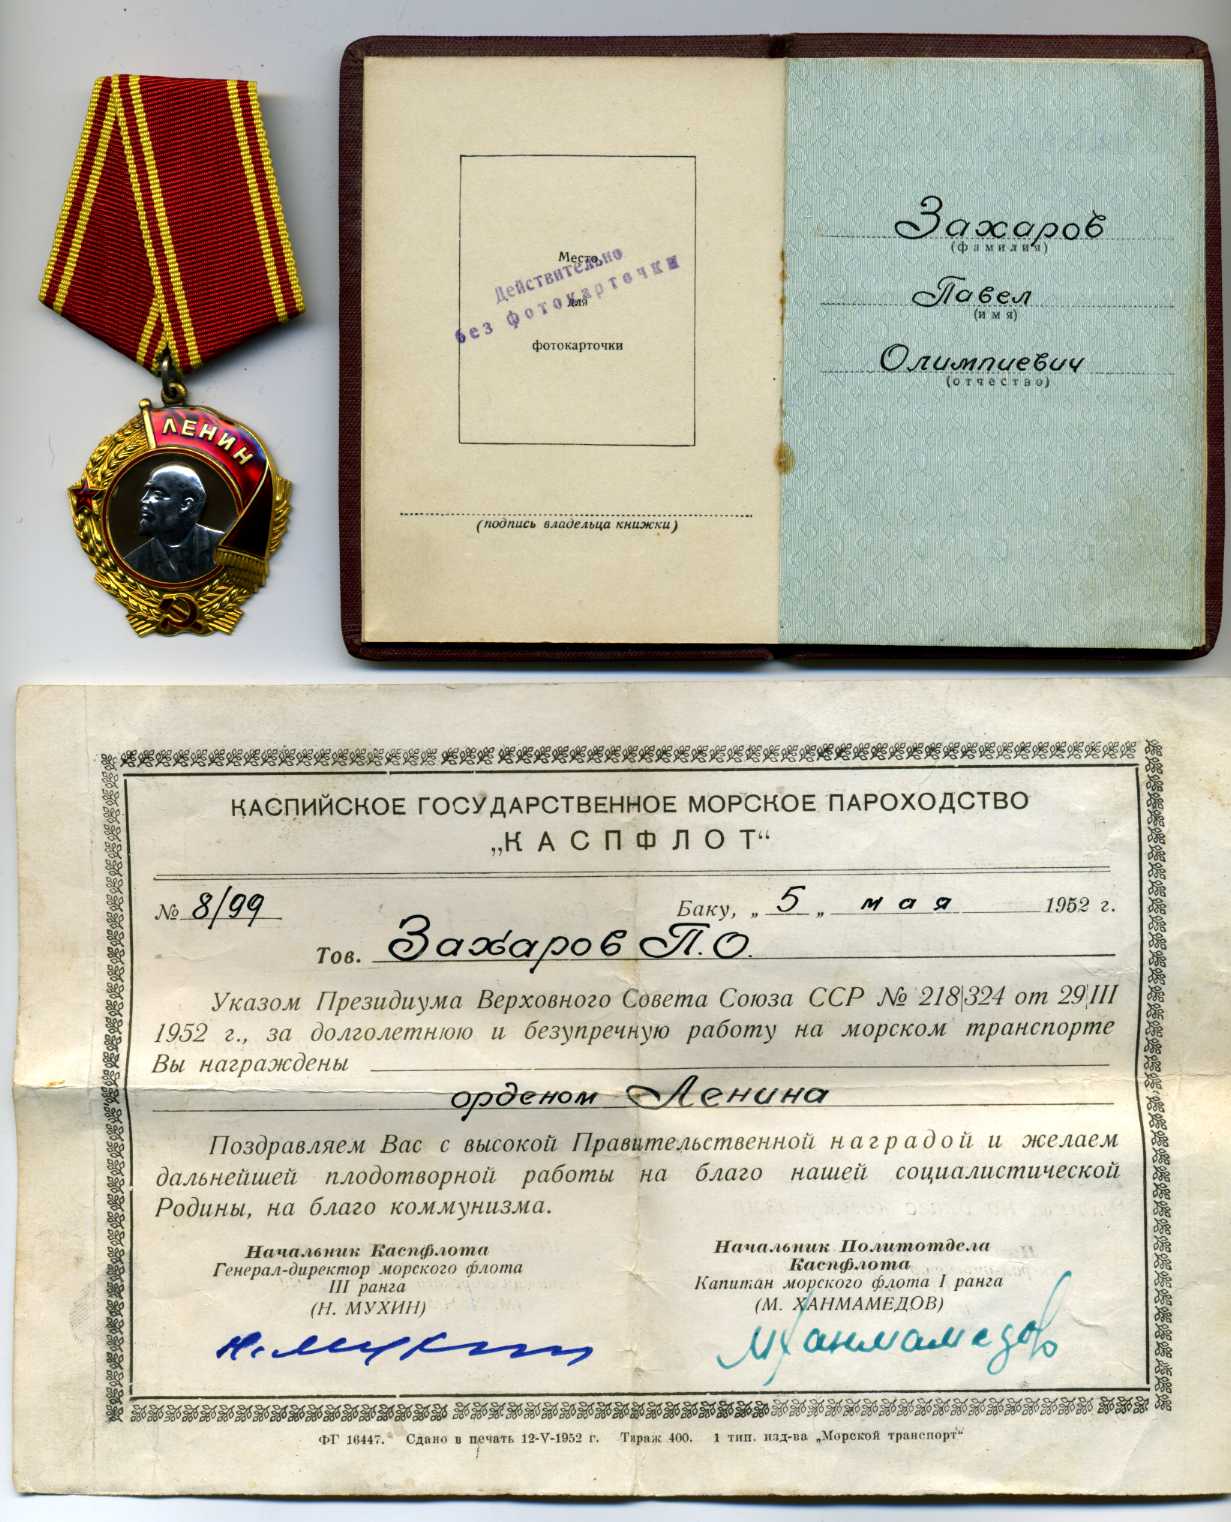 ЛЕНИН
Место
для
фотокарточки
Действительно
без фотокарточки
(подпись владельца книжки)
Захаров
(фамилия)
Павел
(имя)
Олимпиевич
(отчество)
КАСПИЙСКОЕ ГОСУДАРСТВЕННОЕ МОРСКОЕ ПАРОХОДСТВО
„КАСПФЛОТ“
№ 8/99 Баку, „ 5 „ мая 1952 г.
Тов. Захаров П.О.
Указом Президиума Верховного Совета Союза ССР № 218|324 от 29|III
1952 г., за долголетнюю и безупречную работу на морском транспорте
Вы награждены
орденом Ленина
Поздравляем Вас с высокой Правительственной наградой и желаем
дальнейшей плодотворной работы на благо нашей социалистической
Родины, на благо коммунизма.
Начальник Каспфлота
Генерал-директор морского флота
III ранга
(Н. МУХИН)
Н. Мухин
Начальник Политотдела
Каспфлота
Капитан морского флота I ранга
(М. ХАНМАМЕДОВ)
МХанмамедов
ФГ 16447. Сдано в печать 12-V-1952 г. Тираж 400. 1 тип. изд-ва „Морской транспорт“